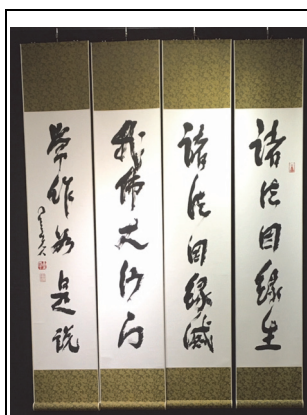 諸法因緣生
諸法因緣滅
我佛大沙門
常作如是說